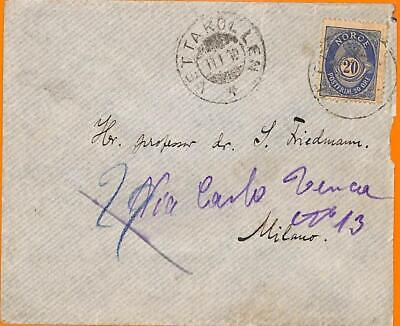 VETTAKOLLEN
11 I 10
NORGE
20
POSTFRIM. 20 ØRE
Hr. professor dr. S. Friedmann.
Via Carlo Tenca
N° 13
Milano.